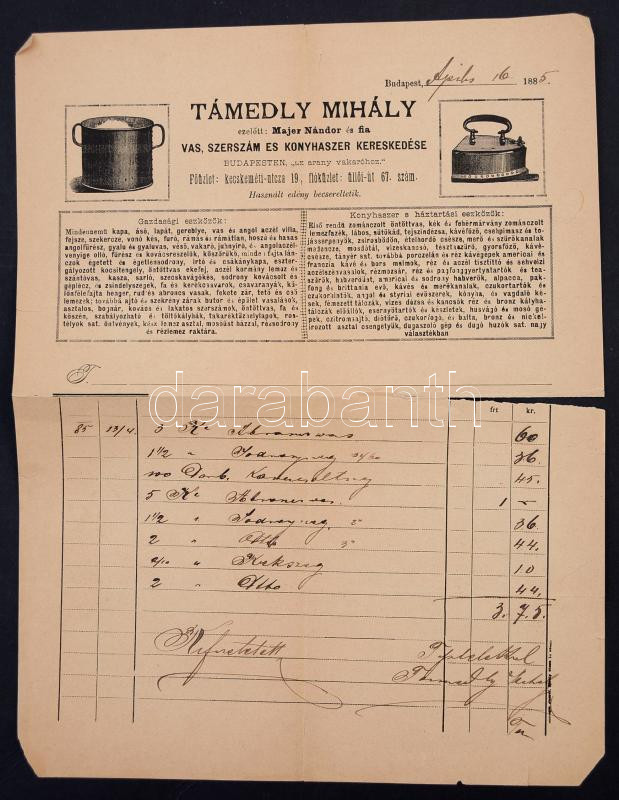 Budapest, Április 16 1885.
TÁMEDLY MIHÁLY
ezelőtt: Majer Nándor és fia
VAS, SZERSZÁM ES KONYHASZER KERESKEDÉSE
BUDAPESTEN, „az arany vakaróhoz."
Főüzlet: kecskeméti-utcza 19, fióküzlet: üllői-út 67. szám.
Használt edény becseréltetik.
Gazdasági eszközök:
Mindennemű kapa, ásó, lapát, gereblye, vas és angol aczél villa,
fejsze, szekercze, vonó kés, furó, rámás és rámátlan, hosszú és hasas
angolfűrész, gyalu és gyaluvas, véső, vakaró, jahnyíró, é- angolaczél-
venyige olló, fúrész és kovácsreszelők, köszörűkő, minden fajta lán-
czok égetett és égetlensodrony, irtó és csákánykapa, eszter-
gályozott kocsitengely, öntöttvas ekefej, aczél kormány lemez és
szántóvas, kasza, sarló, szecskavágókés, sodrony kovácsolt és
géplécz, és zsindelyszegek, fa és kerékcsavarok, csavaranyák, kü-
lönféle fajta henger, rud és abroncs vasak, fekete zár, tető és cső
lemezek továbbá ajtó és szekrény zárak butor és épület vasalások,
asztalos, bognár, kovács és lakatos szerszámok, öntöttvas, fa és
kőszén, szabályozható és töltőkályhák, takaréktűzhelylapok, ros-
télyok sat. öntvények, kész lemez asztal, mosóüst házzal, rézsodrony
és rézlemez raktára.
Konyhaszer a háztartási eszközök:
Első rendű zománczolt öntöttvas, kék és fehérmárvány zománczolt
lemezfazék, lábos, sütőkád, tejszindézsa, kávéfőző, cselpimasz és to-
jássserpenyők, zsírosbödön, ételhordó csésze, merő és szűrőkanalak
mosdótál, vizeskancsó, tésztaszűrő, gyorsfőző, kávé-
csésze, tányér sat. továbbá porczelán és réz kávégepek americai és
franczia kávé és bors malmok, réz és aczél tisztitó és sehveizi
aczélészvasalók, rézmozsár, réz és pakfonggyertyatartók és tea-
szűrők, habverőüst, americai és sodrony habverők, alpacca, pak-
fong és britania evő, kávés és merőkanalak, czukortartók és
czukorolatók, angol és styriai evőszerek, könyha, és vagdaló ké-
sek, fémezett tálczák, vizes dózsa és kancsók réz és bronz kályha-
tálczák előállók, esernyőtartók és készletek, husvágó és mosó gé-
pek, czitromsajtó, diótörő, czukorfogó, és balta, bronz és nickel-
irozott asztal csengetyűk, dugaszoló gép és dugó huzók sat. nagy
választékban
T.
frt kr.
85 13/4. 3 Ko Abroncsvas 60
1 1/2 „ Sodronyszeg 36.
100 Darb. 45.
5 Ko Abroncsvas 1 –
1 1/2 „ Sodronyszeg 3" 36.
2 „ Otto 3" 44.
2/10 „ 10
2 „ Otto 44.
3. 75.
Kifizetetett
Tisztelettel
Támedly Mihály
darabanth